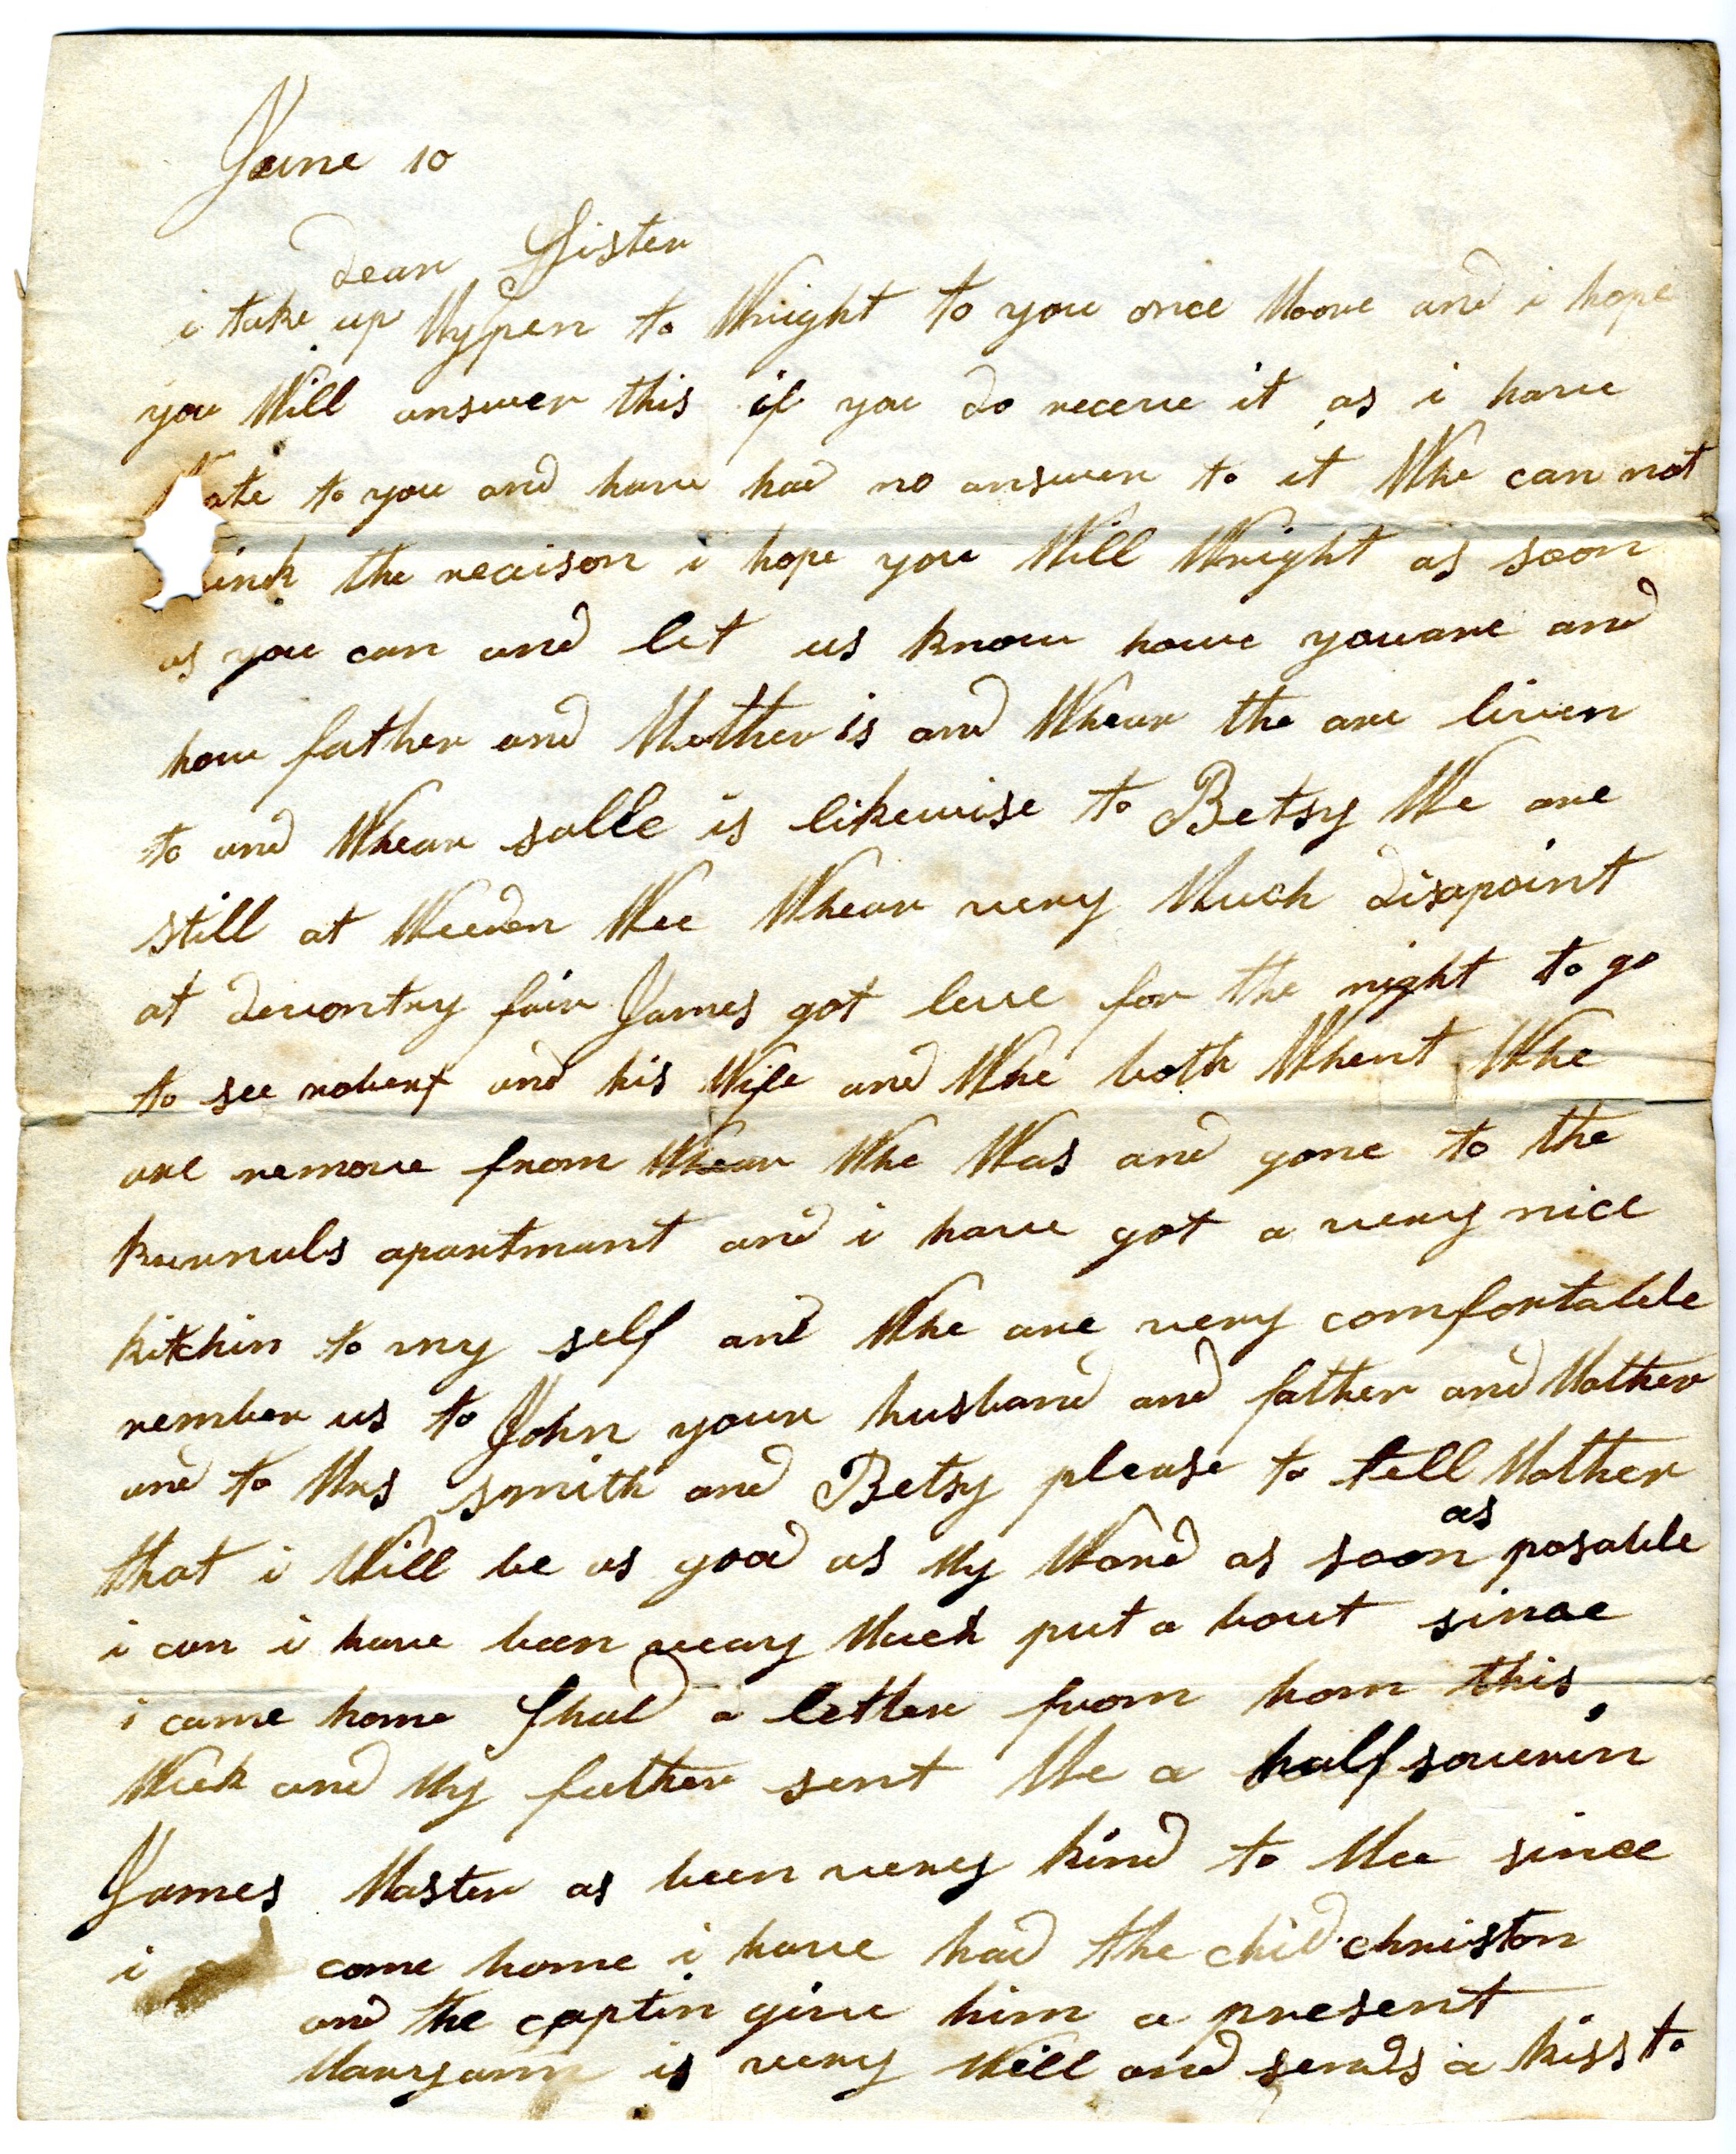 June 10
dear Sister
i take up My pen to Wright to you once Moore and i hope
you Will answer this if you do receve it as i have
ate to you and have had no answer to it Whe can not
ink the reaison i hope you Will Wright as soon
as you can and let us know howe youare and
how father and Mother is and Whear the are liven
to and Whear salle is likewise to Betsy We are
still at Weeden Wee Whear very Much disapoint
at deventry fair James got leve for the night to go
to see robert and his Wife and Whe both Whent Whe
are remove from Whear Whe Was and gone to the
kurnuls apartmant and i have got a very nice
kitchin to my self and Whe are very comfortable
rember us to John your husband and father and Mother
and to Mrs smith and Betsy please to tell Mother
that i Will be as good as My Word as soon as posable
i can i have been veary Much put a bout since
i came home I had a letter from hom this
Week and My father sent Me a half soverin
James Master as been very kind to Mee since
i come home i have had the chid christon
and the captin give him a present
Maryann is very Well and sends a kiss to